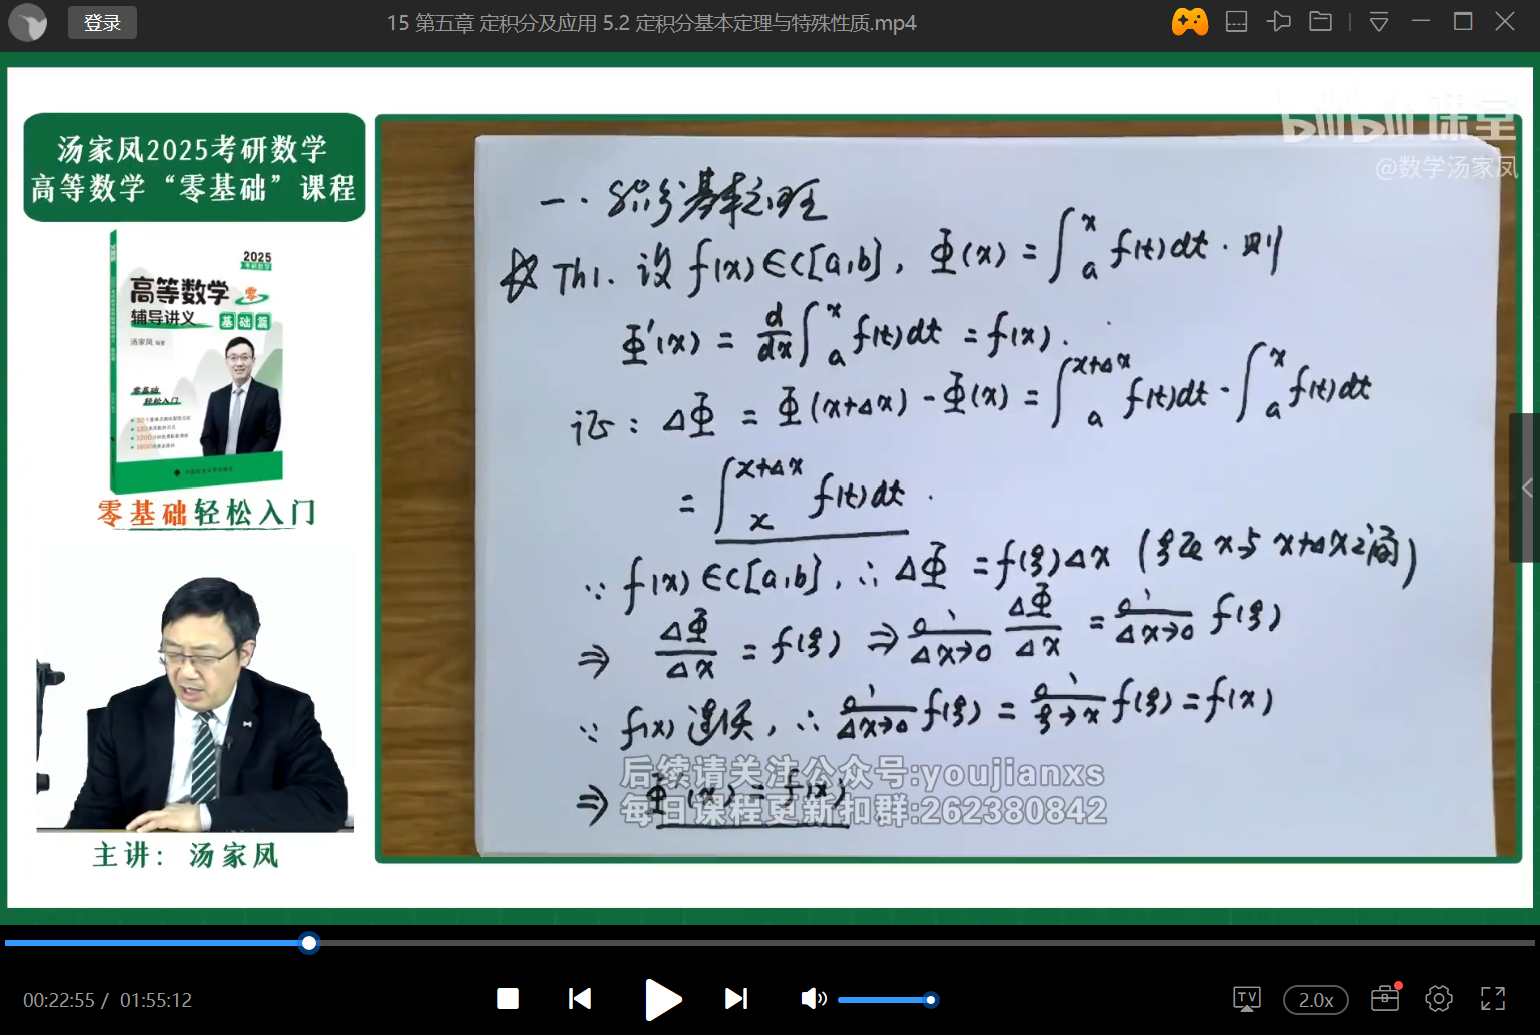 登录
15 第五章 定积分及应用 5.2 定积分基本定理与特殊性质.mp4
汤家凤2025考研数学
高等数学“零基础”课程
2025
考研数学
高等数学 零
辅导讲义 基础篇
汤家凤 编著
零基础
轻松入门
零基础轻松入门
主讲：汤家凤
bilibili 课堂
@数学汤家凤
一.积分基本定理
☆ Th1. 设 f(x)∈C[a,b], Φ(x) = ∫_a^x f(t)dt. 则
Φ'(x) = d/dx ∫_a^x f(t)dt = f(x).
证: ΔΦ = Φ(x+Δx) - Φ(x) = ∫_a^{x+Δx} f(t)dt - ∫_a^x f(t)dt
= ∫_x^{x+Δx} f(t)dt.
∵ f(x)∈C[a,b], ∴ ΔΦ = f(ξ)Δx (ξ在x与x+Δx之间)
⇒ ΔΦ/Δx = f(ξ) ⇒ lim_{Δx→0} ΔΦ/Δx = lim_{Δx→0} f(ξ)
∵ f(x)连续, ∴ lim_{Δx→0} f(ξ) = lim_{ξ→x} f(ξ) = f(x)
⇒ Φ'(x) = f(x)
后续请关注公众号:youjianxs
每日课程更新扣群:262380842
00:22:55 / 01:55:12
TV
2.0x